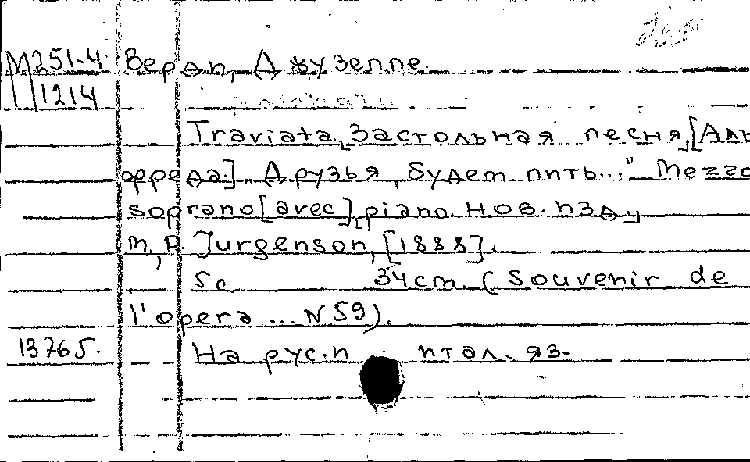 М251-4 Верди, Джузеппе.
1214
Traviata, Застольная песня, [Аль
фреда.] Друзья, будем пить..." Mezzo
soprano [avec] piano. Нов. изд.,
M, P. Jurgenson, [1888].
5c 34 cm. (Souvenir de
l'opera ... N 59).
13765. На рус. и итал. яз.